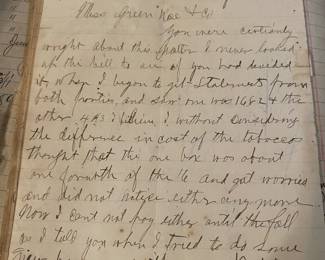 Mess Green Rae & Co
You were certianly
wright about this matter I never looked
up the bill to see if you had divided
it when I began to git Statements from
both parties and saw one was 1682 & the
other 483 I believe I without considering
the difference in cost of the tobaccos
thought that the one box was about
one fourth of the 16. and got worried
and did not notice either any more
Now I can't pay either until the fall
as I told you when I tried to do some